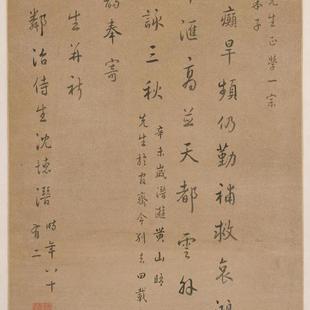 先生正学一宗
朱子
痌旱頻仍勤補救哀鴻
滙高並天都雲外
詠三秋
辛未歲潛遊黃山晤
先生於官齋今別去四載
奉寄
生并祈
鄰治侍生沈德潛
時年八十
有二